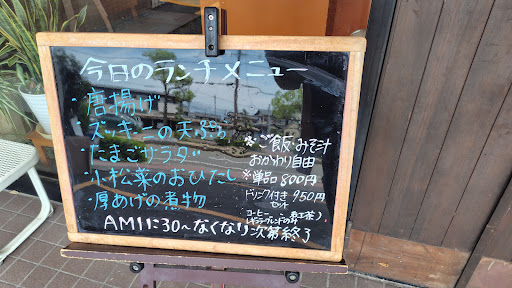 今日のランチメニュー
・唐揚げ
・ズッキーニの天ぷら
・たまごサラダ
・小松菜のおひたし
・厚あげの煮物
※ご飯・みそ汁
おかわり自由
※単品 800円
ドリンク付き 950円
セット
コーヒー
AM11:30~なくなり次第終了